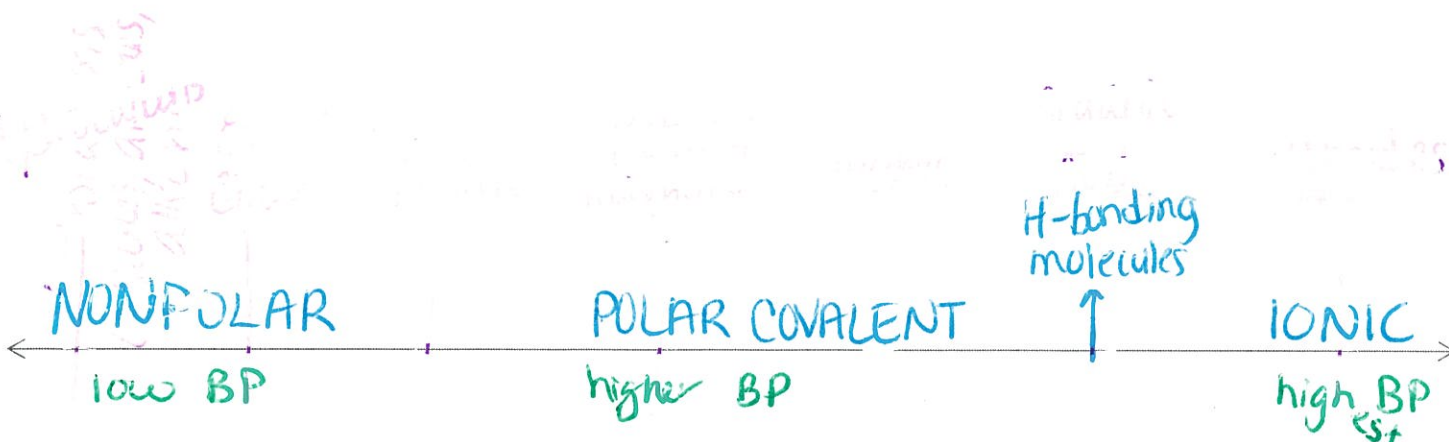 H-bonding
molecules
NONPOLAR
POLAR COVALENT
IONIC
low BP
higher BP
highest BP